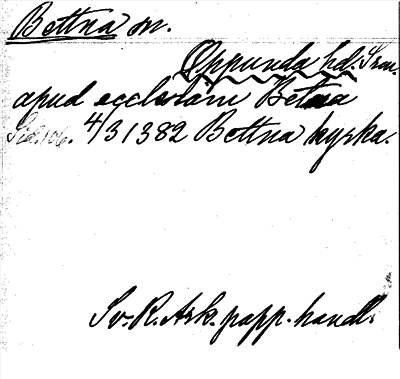 Bettna sn.
Oppunda hd. Srm.
apud ecclesiam Betna
4/3 1382 Bettna kyrka.
Sv. R. Ark. papp. handl.